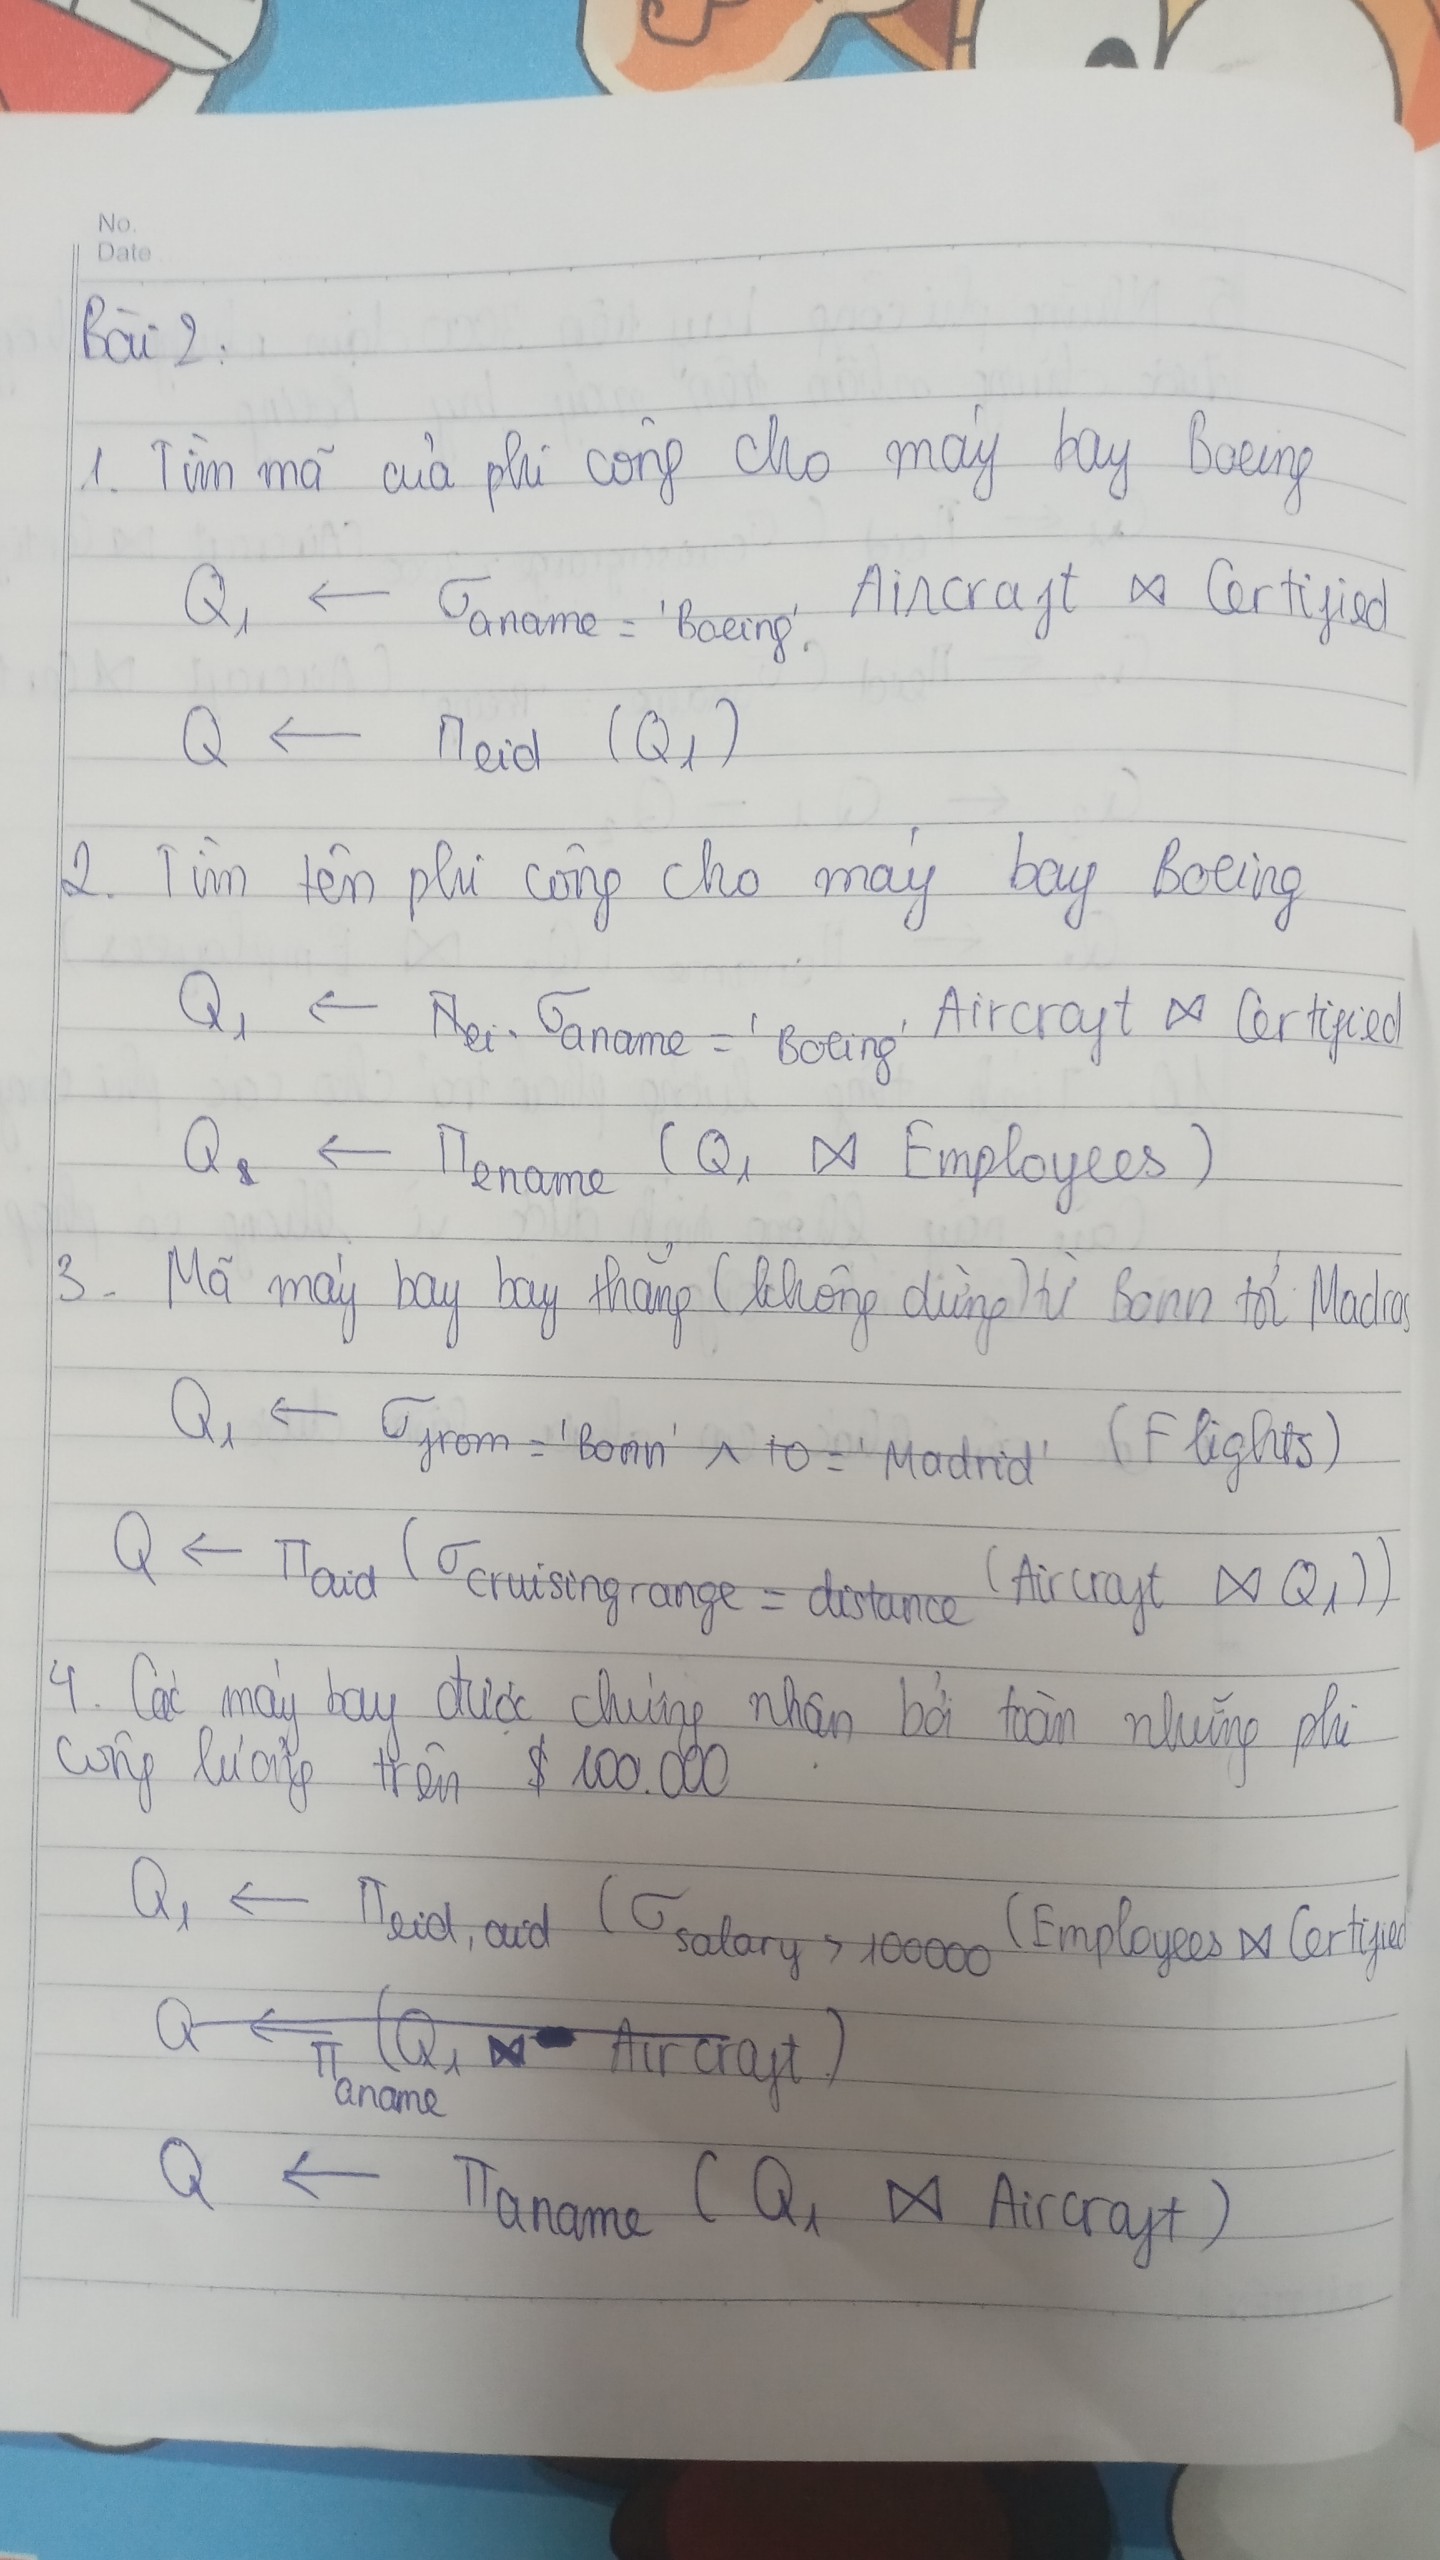 No.
Date
Bài 2:
1. Tìm mã của phi công cho máy bay Boeing
Q₁ ← σ aname = 'Boeing' Aircraft ⋈ Certified
Q ← π eid (Q₁)
2. Tìm tên phi công cho máy bay Boeing
Q₁ ← σ aname = 'Boeing' Aircraft ⋈ Certified
Q ← π ename (Q₁ ⋈ Employees)
3. Mã máy bay bay thẳng (không dừng) từ Bonn tới Madras
Q₁ ← σ from = 'Bonn' ∧ to = 'Madrid' (Flights)
Q ← π aid (σ cruisingrange = distance (Aircraft ⋈ Q₁))
4. Các máy bay được chứng nhận bởi toàn những phi
công lương trên $ 100.000
Q₁ ← π eid, aid (σ salary > 100000 (Employees ⋈ Certified
Q ← π aname (Q₁ ⋈ Aircraft)
Q ← π aname (Q₁ ⋈ Aircraft)